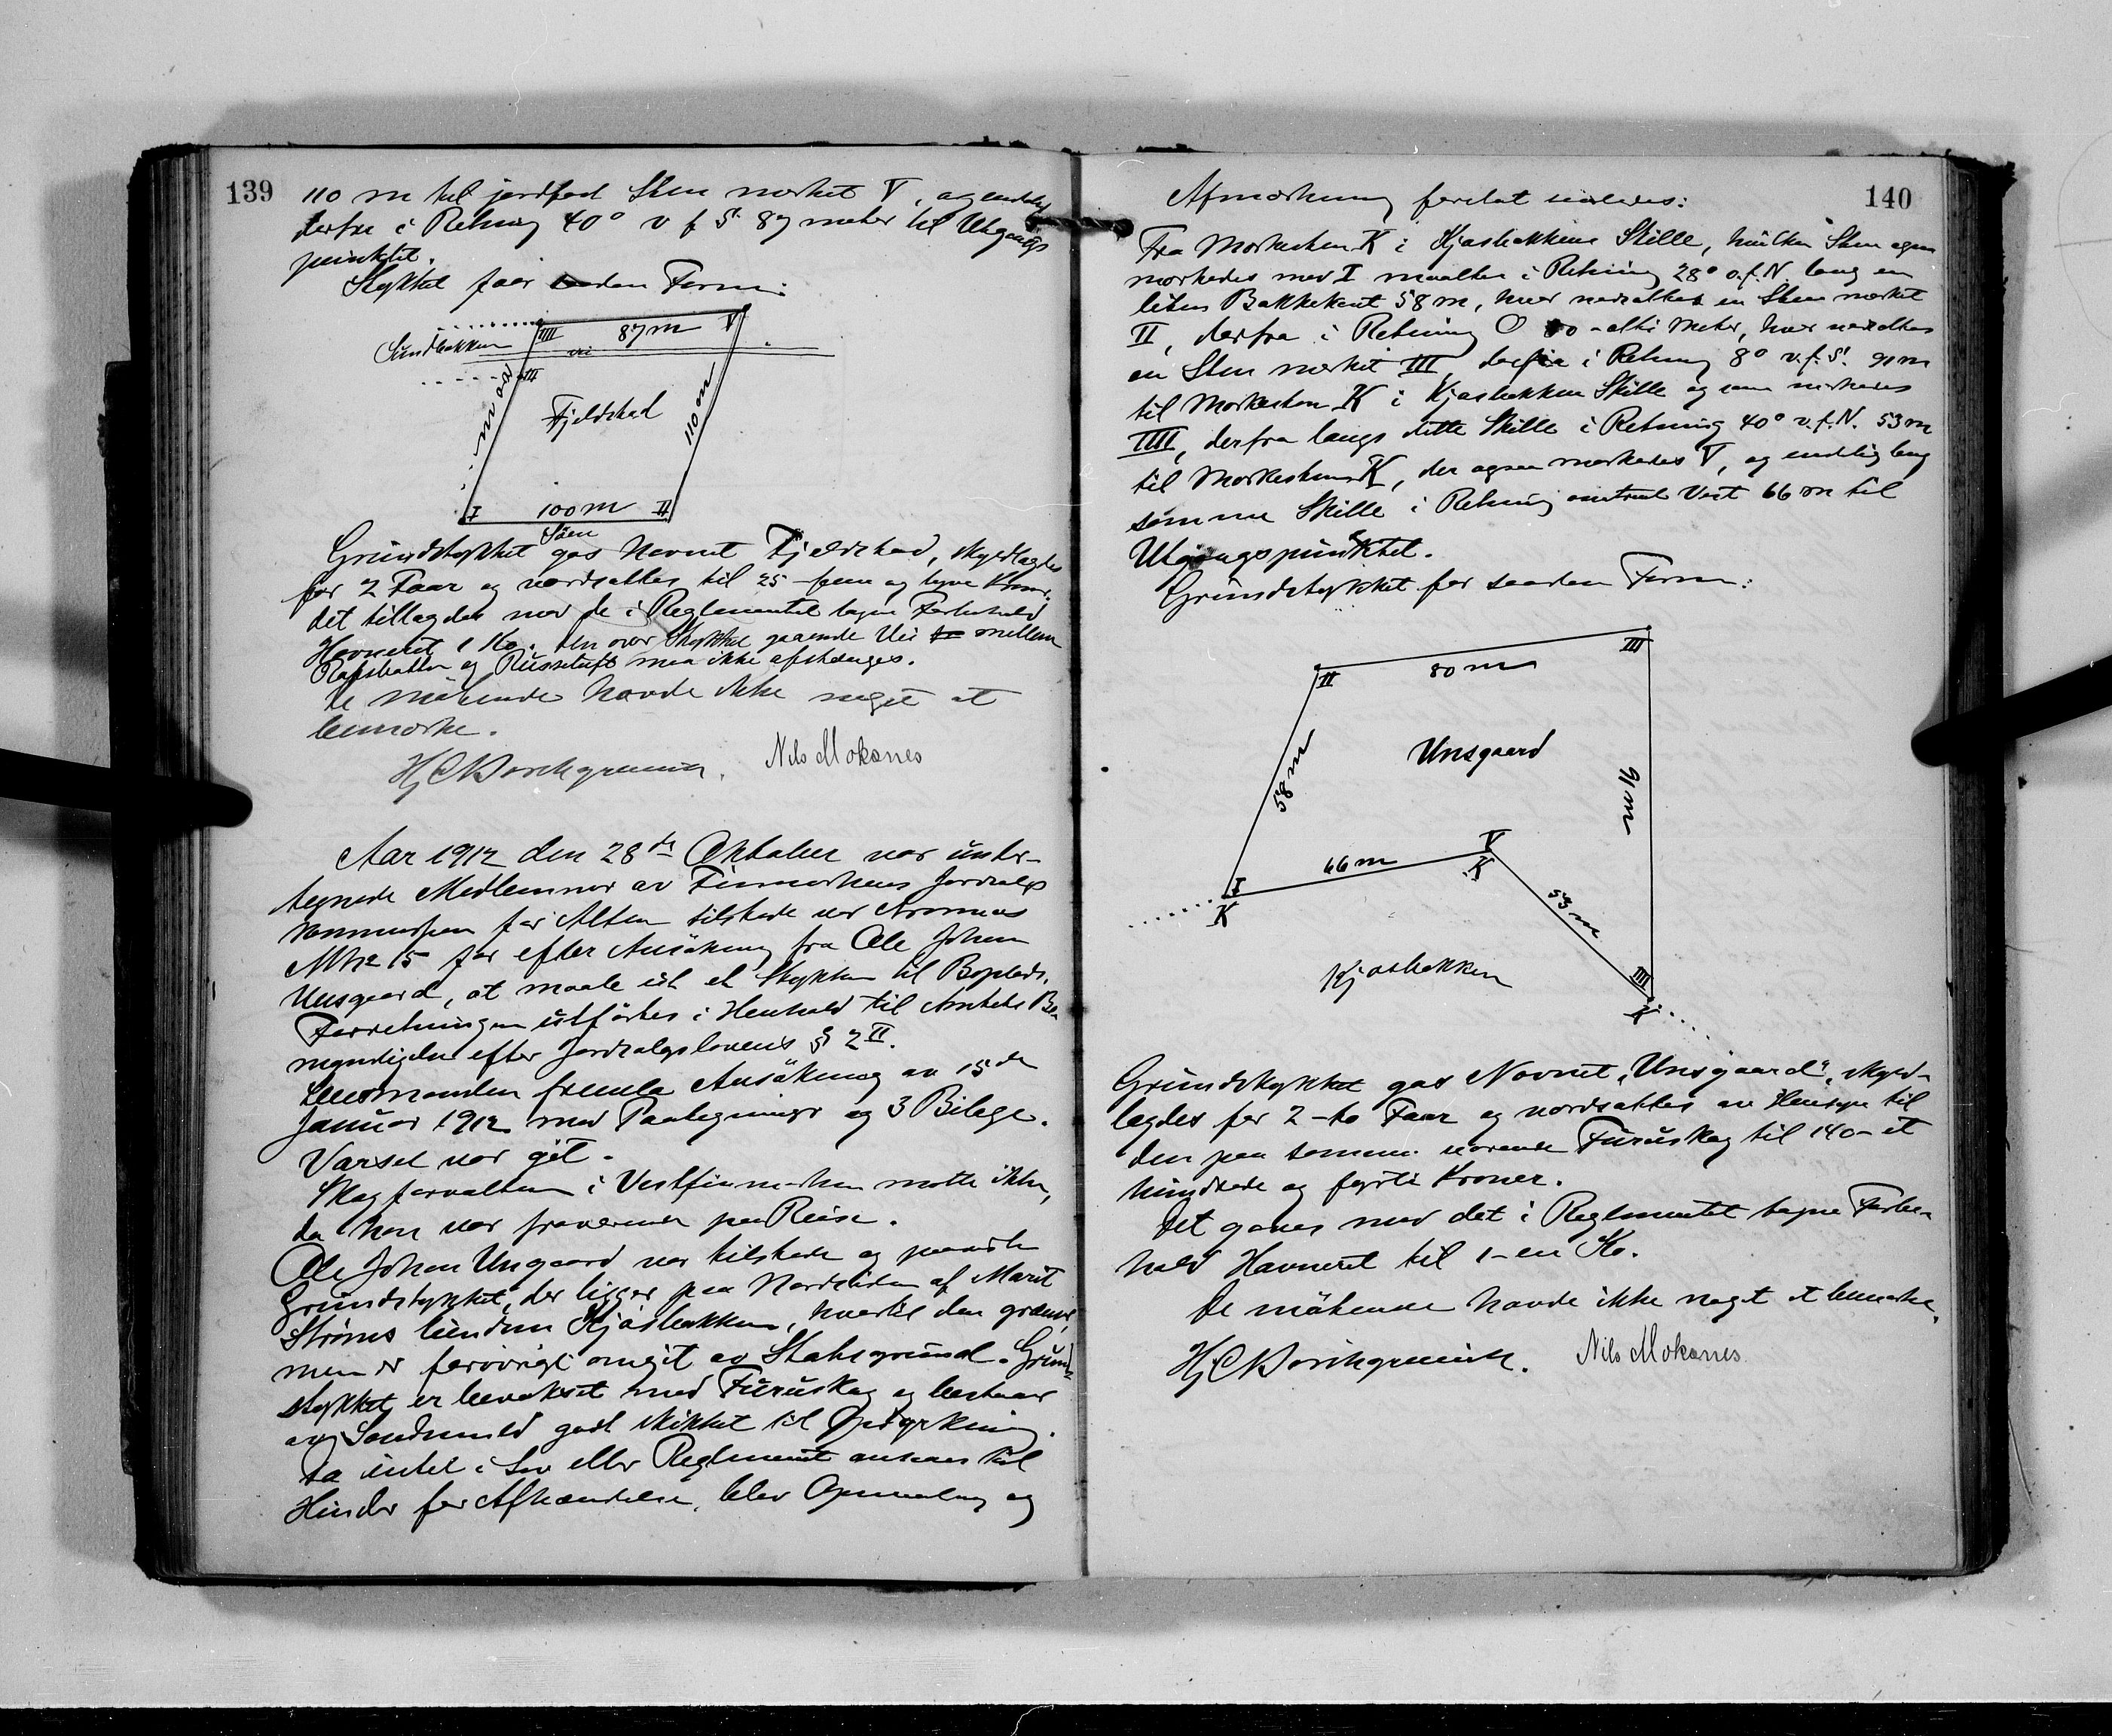 139
110 m til jordfast Sten merket V, og endelig
derfra i Retning 40° v f S. 87 meter til Utgangs
punktet.
Stykket faar saadan Form:
IIII 87 m V
Sundbakken
vei
III
Fjeldstad
110 m
I 100 m II
Søen
Grundstykket gas Navnet Fjeldstad, skyldlagdes
for 2 Faar og værdsattes til 25 - fem og tyve Kroner.
Det tillagdes med de i Reglementet tagne Forbehold
Havneret 1 Ko. Den over Stykket gaaende Vei mellem
og Russeluft maa ikke afstænges.
De mötende havde ikke noget at
bemærke.
Nils Mokanes
Aar 1912 den 28de Oktober var under-
tegnede Medlemmer av Finmarkens Jordsalgs
kommission for Alten tilstede ved
No 15 for efter Ansökning fra Ole Johan
Unsgaard, at maale ut et Stykke til Boplads.
Forretningen utförtes i Henhold til Amtets Be
myndigelse efter Jordsalgslovens § 2 II.
Lensmanden fremla Ansökning av 15de
Januar 1912 med Paategninger og 3 Bilage.
Varsel var git.
Skogforvalteren i Vestfinmarken mötte ikke,
da han var fraværende paa Reise.
Ole Johan Unsgaard var tilstede og paaviste
Grundstykket, der ligger paa Nordsiden af Marit
Ströms Eiendom Kjosbakken, hvortil den grænser,
men er forövrigt omgit av Statsgrund. Grund-
stykket er bevokset med Furuskog og bestaar
av Sandmuld godt skikket til Opdyrkning.
Da intet i Lov eller Reglement ansaaes til
Hinder for Afhændelse, blev Opmaaling og
140
Afmerkning foretat saaledes:
Fra Merkesten K i Kjosbakkens Skille, hvilken Sten ogsaa
merkedes med I maaltes i Retning 28° o.f.N langs en
liten Bakkekant 58 m, hvor nedsattes en Sten merket
II, derfra i Retning O 80 - otti Meter, hvor nedsattes
en Sten merket III, derfra i Retning 8° v.f.S. 91 m
til Merkesten K i Kjosbakkens Skille og som merkedes
IIII, derfra langs dette Skille i Retning 40° v.f.N. 53 m
til Merkesten K, der ogsaa merkedes V, og endelig langs
samme Skille i Retning omtrent Vest 66 m til
Utgangspunktet.
Grundstykket faar saadan Form:
II 80 m III
58 m
Unsgaard
91 m
V
K
66 m
I
K
53 m
Kjosbakken
IIII
K
Grundstykket gas Navnet "Unsgaard", skyld-
lagdes for 2 - to Faar og værdsattes av Hensyn til
den paa samme værende Furuskog til 140 - et
hundrede og fyrti Kroner.
Det gaves med det i Reglementet tagne Forbe-
hold Havneret til 1 - en Ko.
De mötende havde ikke noget at bemerke.
Nils Mokanes